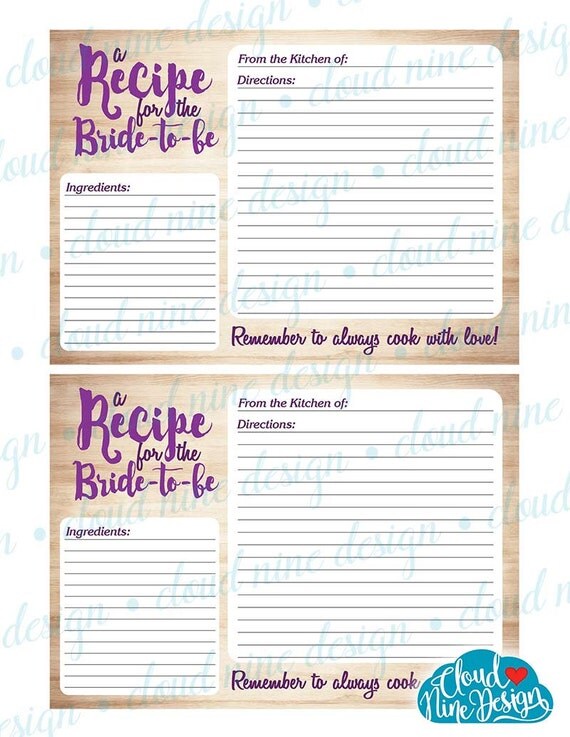 a
Recipe
for the
Bride-to-be
Ingredients:
From the Kitchen of:
Directions:
Remember to always cook with love!
a
Recipe
for the
Bride-to-be
Ingredients:
From the Kitchen of:
Directions:
Remember to always cook
Cloud
Nine Design
cloud nine design • cloud nine design